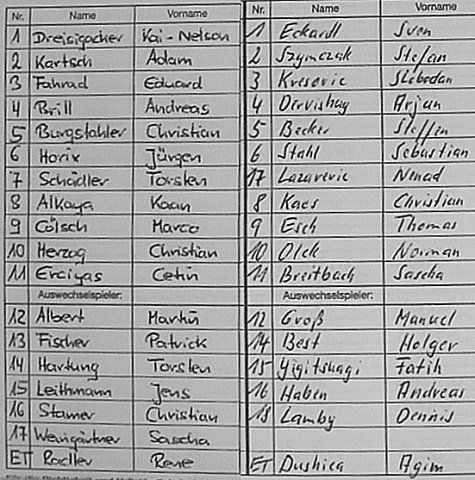 Nr. Name Vorname
1 Dreisigacher Kai-Nelson
2 Kartsch Adam
3 Fahrad Eduard
4 Brill Andreas
5 Burgstahler Christian
6 Horix Jürgen
7 Schädler Torsten
8 Alkaya Kaan
9 Cölsch Marco
10 Herzog Christian
11 Erciyas Cetin
Auswechselspieler:
12 Albert Martin
13 Fischer Patrick
14 Hartung Torsten
15 Leithmann Jens
16 Stamer Christian
17 Weingärtner Sascha
ET Radler Rene
Nr. Name Vorname
1 Eckardt Sven
2 Szymczak Stefan
3 Kresovic Slobodan
4 Dervishaj Arjan
5 Becker Steffen
6 Stahl Sebastian
17 Lazarevic Nenad
8 Kaes Christian
9 Esch Thomas
10 Olck Norman
11 Breitbach Sascha
Auswechselspieler:
12 Groß Manuel
14 Best Holger
15 Yigitshagi Fatih
16 Haben Andreas
18 Lamby Dennis
ET Dushica Agim